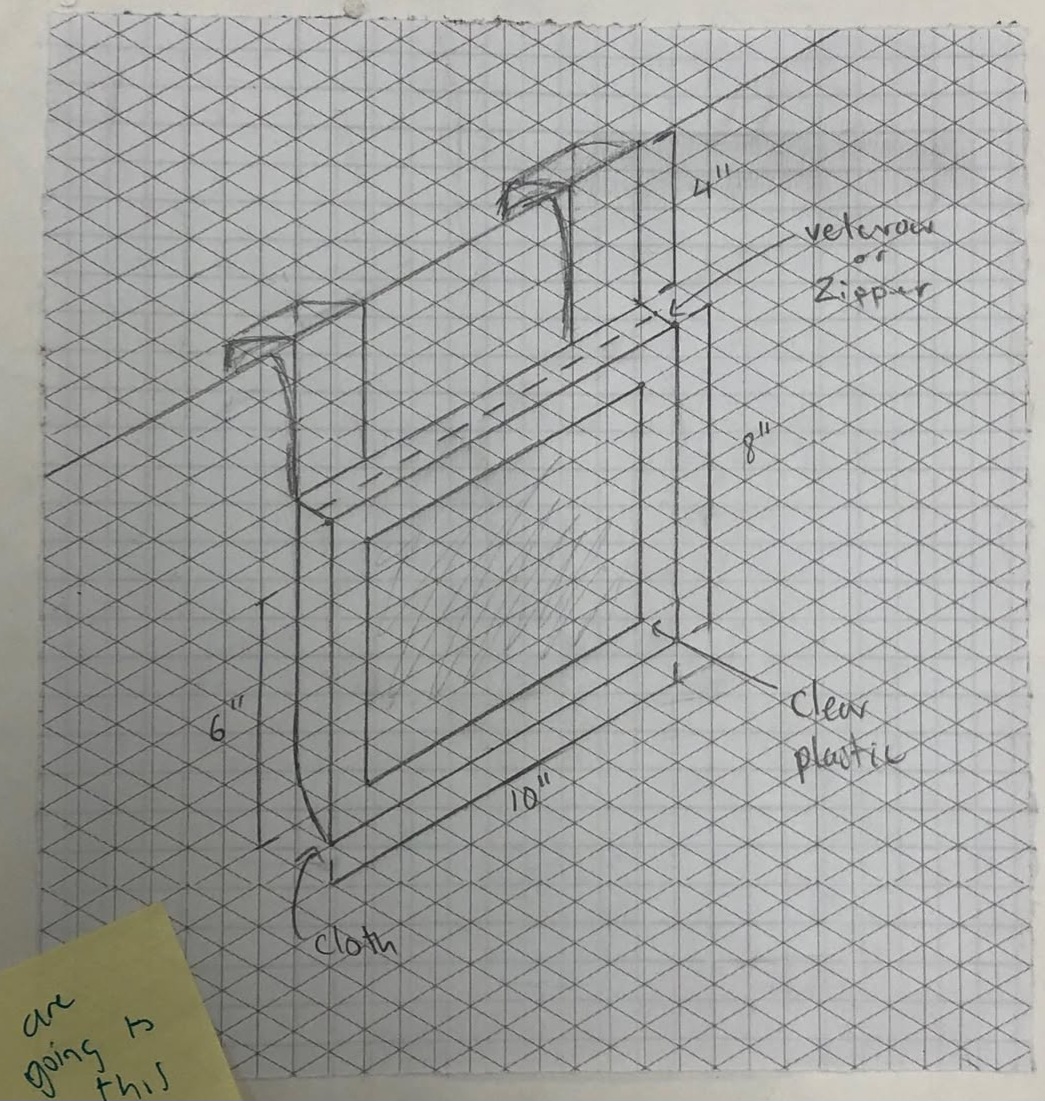 4"
velcrow
or
Zipper
8"
6"
Clear
plastic
10"
cloth
are
going to
this